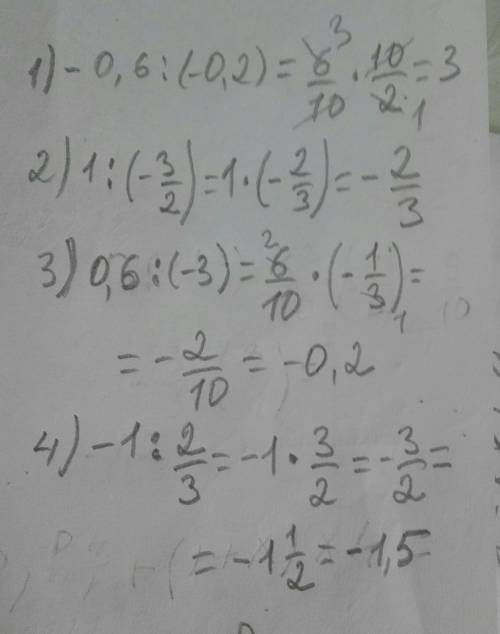 1) - 0,6 : (-0,2) = 6/10 3 · 10/2 1 = 3
2) 1 : (-3/2) = 1 · (-2/3) = - 2/3
3) 0,6 : (-3) = 2 6/10 · (-1/3) 1 =
= - 2/10 = -0,2
4) -1 : 2/3 = -1 · 3/2 = - 3/2 =
= -1 1/2 = -1,5